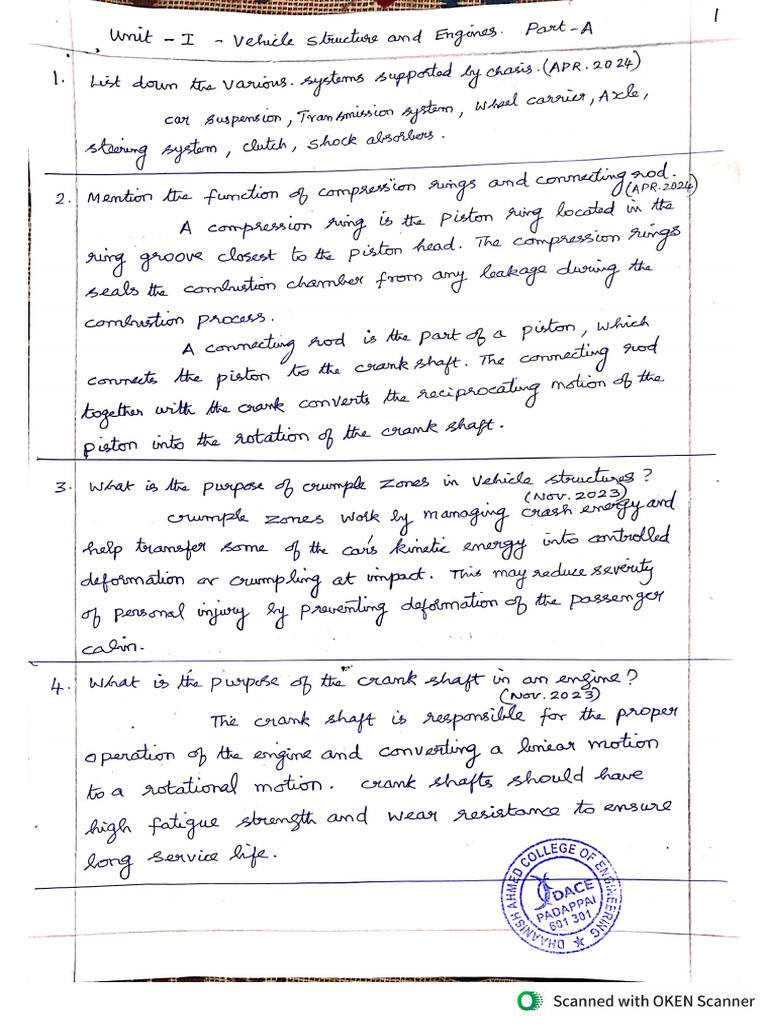 1
Unit - I - Vehicle Structure and Engines. Part-A
1. List down the various. systems supported by chasis. (APR.2024)
car suspension, Transmission system, Wheel carrier, Axle,
steering system, clutch, shock absorbers.
2. Mention the function of compression rings and connecting rod.
(APR.2024)
A compression ring is the piston ring located in the
ring groove closest to the piston head. The compression rings
seals the combustion chamber from any leakage during the
combustion process.
A connecting rod is the part of a piston, which
connects the piston to the crank shaft. The connecting rod
together with the crank converts the reciprocating motion of the
piston into the rotation of the crank shaft.
3. What is the purpose of crumple zones in vehicle structures?
(Nov.2023)
crumple zones work by managing crash energy and
help transfer some of the car's kinetic energy into controlled
deformation or crumpling at impact. This may reduce severity
of personal injury by preventing deformation of the passenger
cabin.
4. What is the purpose of the crank shaft in an engine?
(Nov.2023)
The crank shaft is responsible for the proper
operation of the engine and converting a linear motion
to a rotational motion. crank shafts should have
high fatigue strength and wear resistance to ensure
long service life.
DHAANISH AHMED COLLEGE OF ENGINEERING
DACE
PADAPPAI
601 301
Scanned with OKEN Scanner